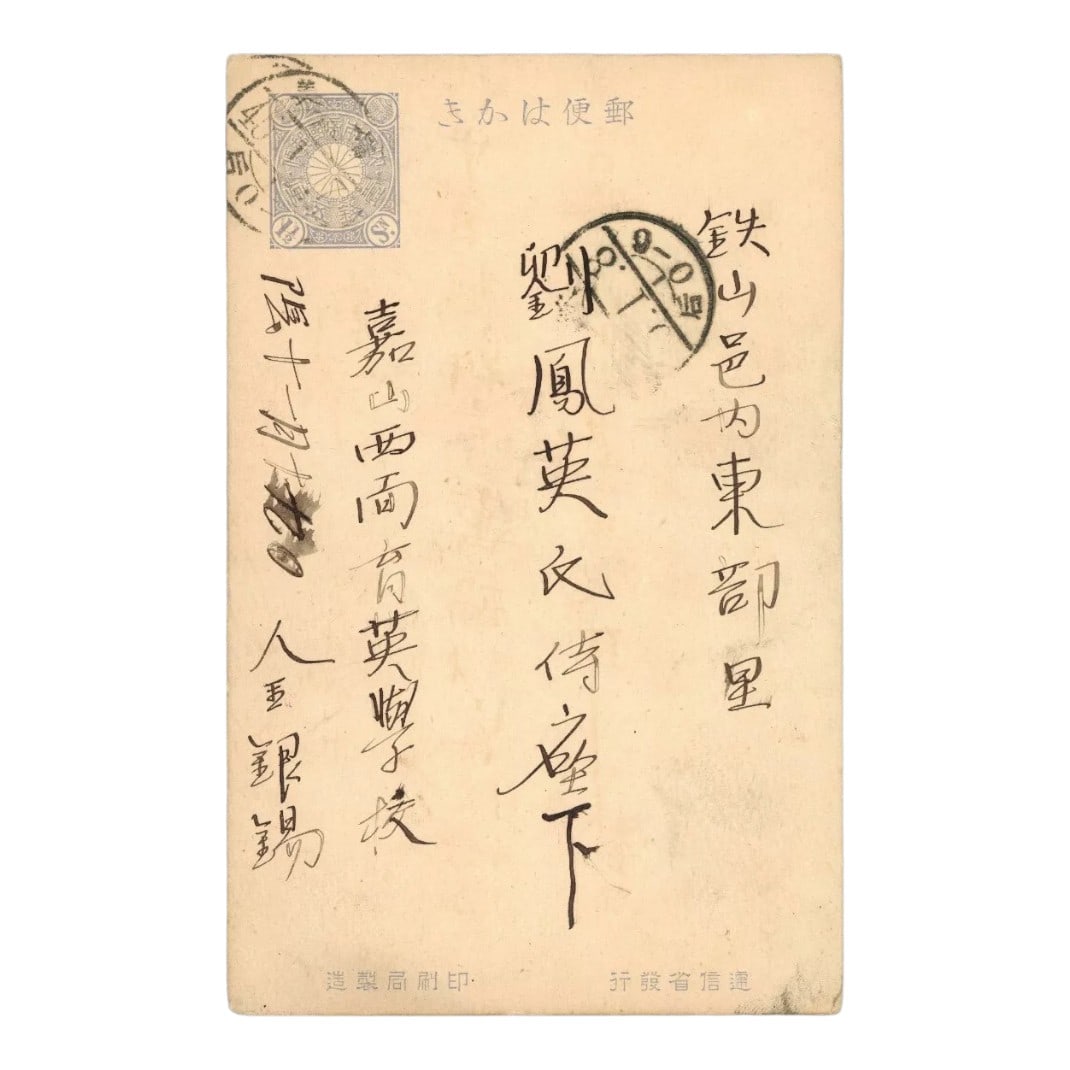 郵便はかき
1½ Sn
鉄山邑内東部里
劉鳳英氏侍座下
嘉山西面育英學校
陰十一月
金銀錫
遞信省發行
印刷局製造